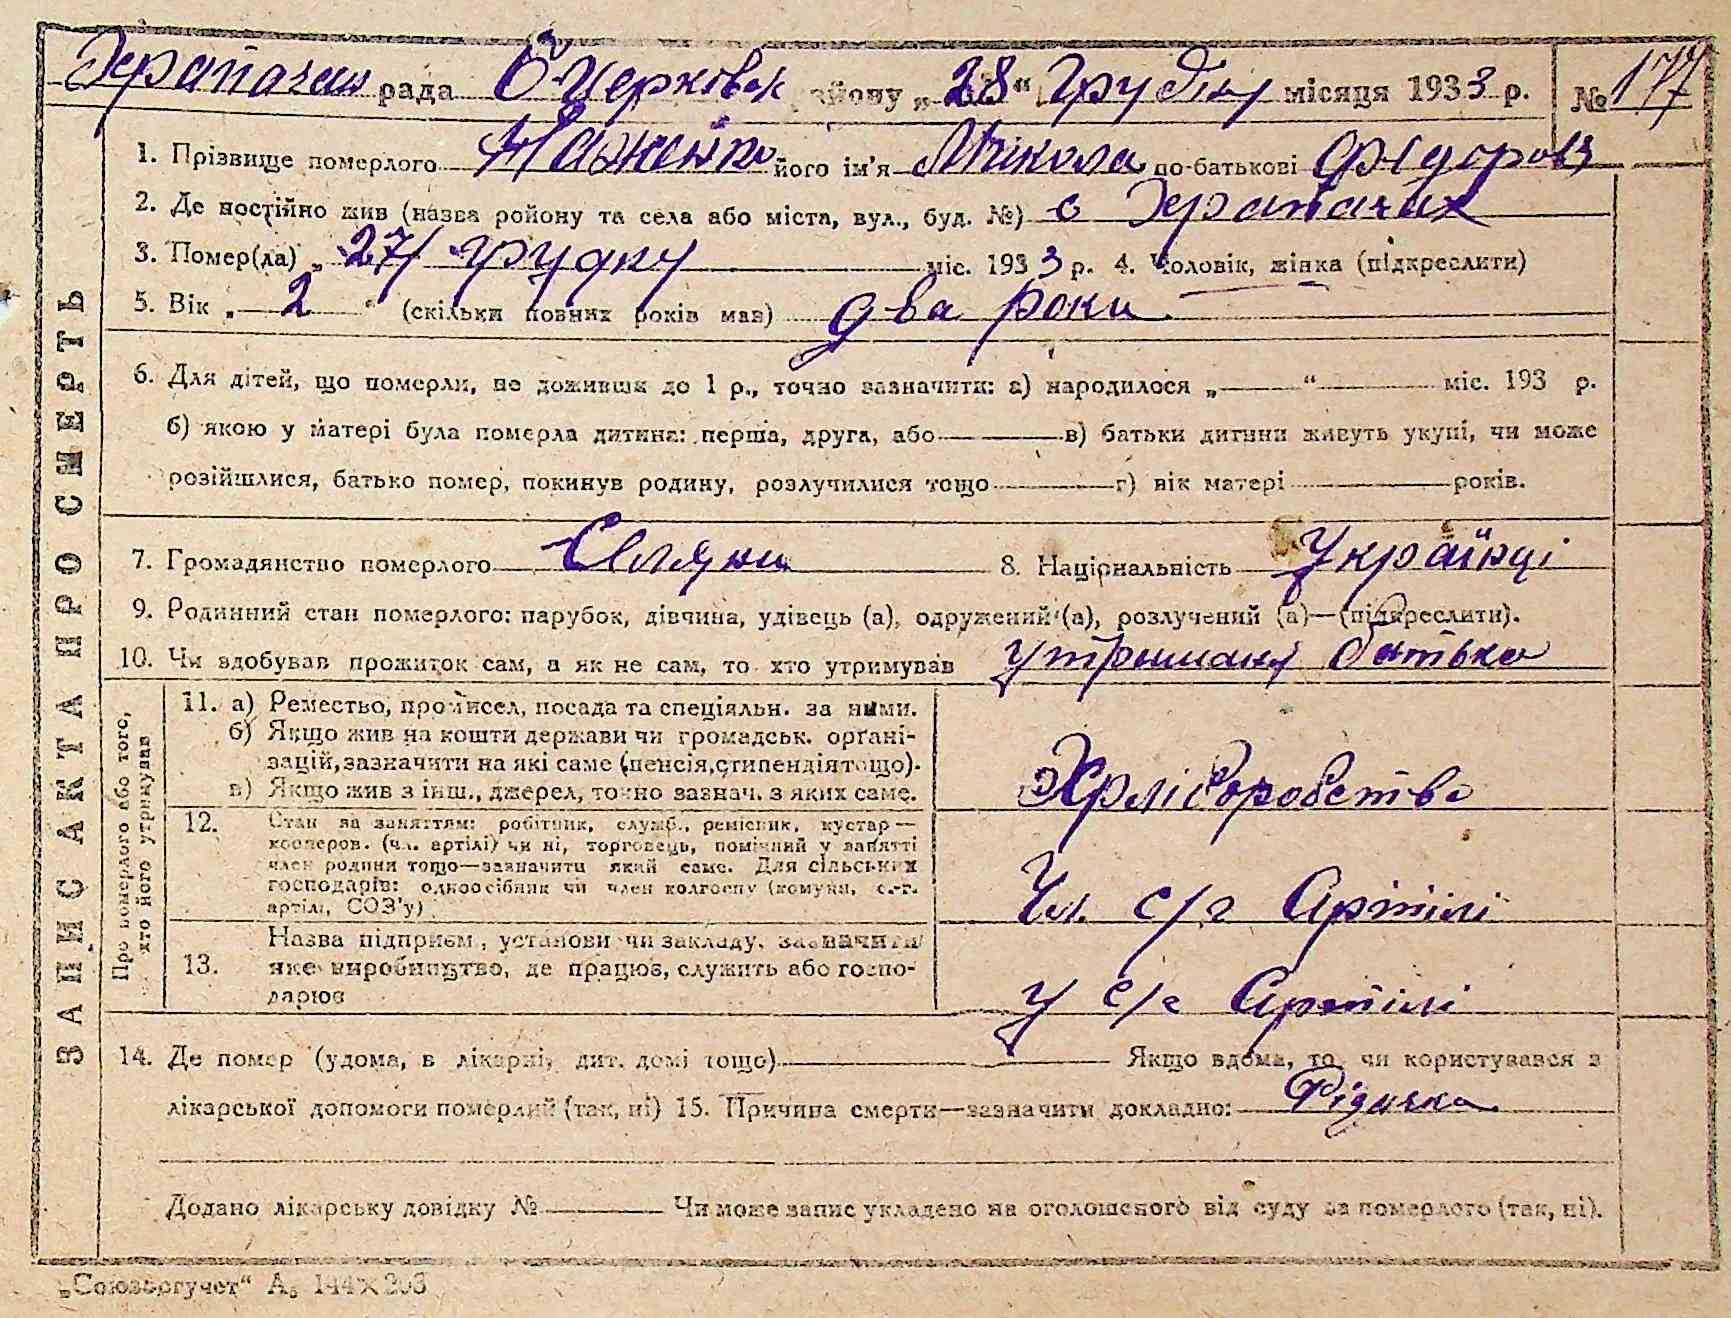 рада Б Церковськ району „28“ Грудня місяця 1933 р. № 177
1. Прізвище померлого його ім'я Микола по-батькові Федоров
2. Де постійно жив (назва ройону та села або міста, вул., буд. №) с
3. Помер(ла) „27 грудня міс. 1933 р. 4. Чоловік, жінка (підкреслити)
5. Вік „ 2 “ (скільки повних років мав) два роки
6. Для дітей, що померли, не доживши до 1 р., точно зазначити: а) народилося „ “ міс. 193 р.
б) якою у матері була померла дитина: перша, друга, або в) батьки дитини живуть укупі, чи може
розійшлися, батько помер, покинув родину, розлучилися тощо г) вік матері років.
7. Громадянство померлого Селяни 8. Національність Українці
9. Родинний стан померлого: парубок, дівчина, удівець (а), одружений (а), розлучений (а)—(підкреслити).
10. Чи здобував прожиток сам, а як не сам, то хто утримував утриманя батька
11. а) Ремество, промисел, посада та спеціяльн. за ними.
б) Якщо жив на кошти держави чи громадськ. орґані-
зацій, зазначити на які саме (пенсія, стипендія тощо).
в) Якщо жив з інш., джерел, точно зазнач. з яких саме.
12. Стан за заняттям: робітник, служб., ремісник, кустар—
кооперов. (чл. артілі) чи ні, торговець, помічний у занятті
член родини тощо—зазначити який саме. Для сільських
господарів: одноосібник чи член колгоспу (комуни, с.-г.
артілі, СОЗ'у)
Чл. с/г Артілі
Назва підприєм., установи чи закладу, зазначити
13. яке виробництво, де працює, служить або госпо-
дарює
у с/г Артілі
14. Де помер (удома, в лікарні, дит. домі тощо) Якщо вдома, то чи користувався з
лікарської допомоги померлий (так, ні) 15. Причина смерти—зазначити докладно:
Додано лікарську довідку № Чи може запис укладено на оголошеного від суду за померлого (так, ні).
ЗАПИС АКТА ПРО СМЕРТЬ
Про померлого або того,
хто його утримував
„Союзоргучет“ А₅ 144×203